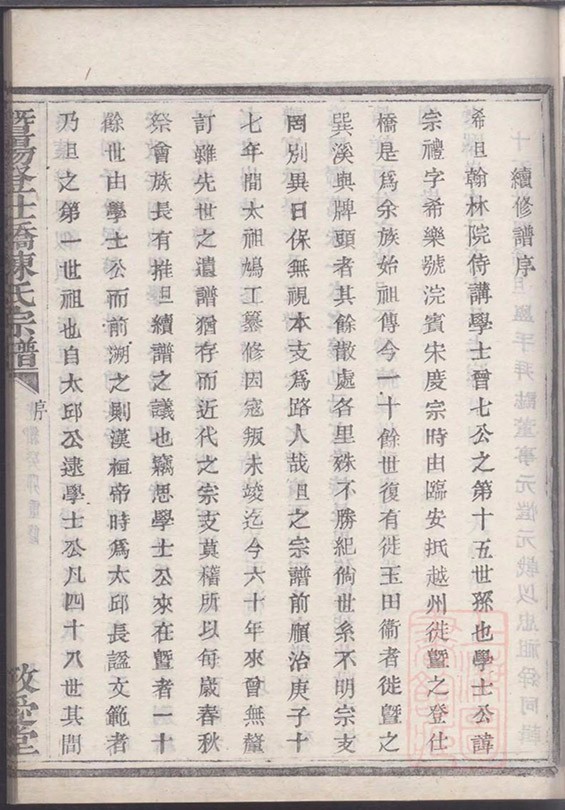 續修譜序
希旦翰林院侍講學士晉七公之第十五世孫也學士公諱
宗禮字希樂號浣賓宋度宗時由臨安抵越州徙暨之登仕
橋是爲余族始祖傳今一十餘世復有徙玉田衕者徙暨之
巽溪與牌頭者其餘散處各里姝不勝紀倘世系不明宗支
罔別異日保無視本支爲路人哉且之宗譜前順治庚子十
七年間太祖鳩工纂修因寇叛未竣迄今六十年來曾無釐
訂雖先世之遺譜猶存而近代之宗支莫稽所以每歲春秋
祭會族長有推旦續譜之議也竊思學士公來在暨者一十
餘世由學士公而前溯之則漢桓帝時爲太邱長諡文範者
乃旦之第一世祖也自太邱公逮學士公凡四十八世其間
暨陽登仕橋陳氏宗譜
序
敬愛堂